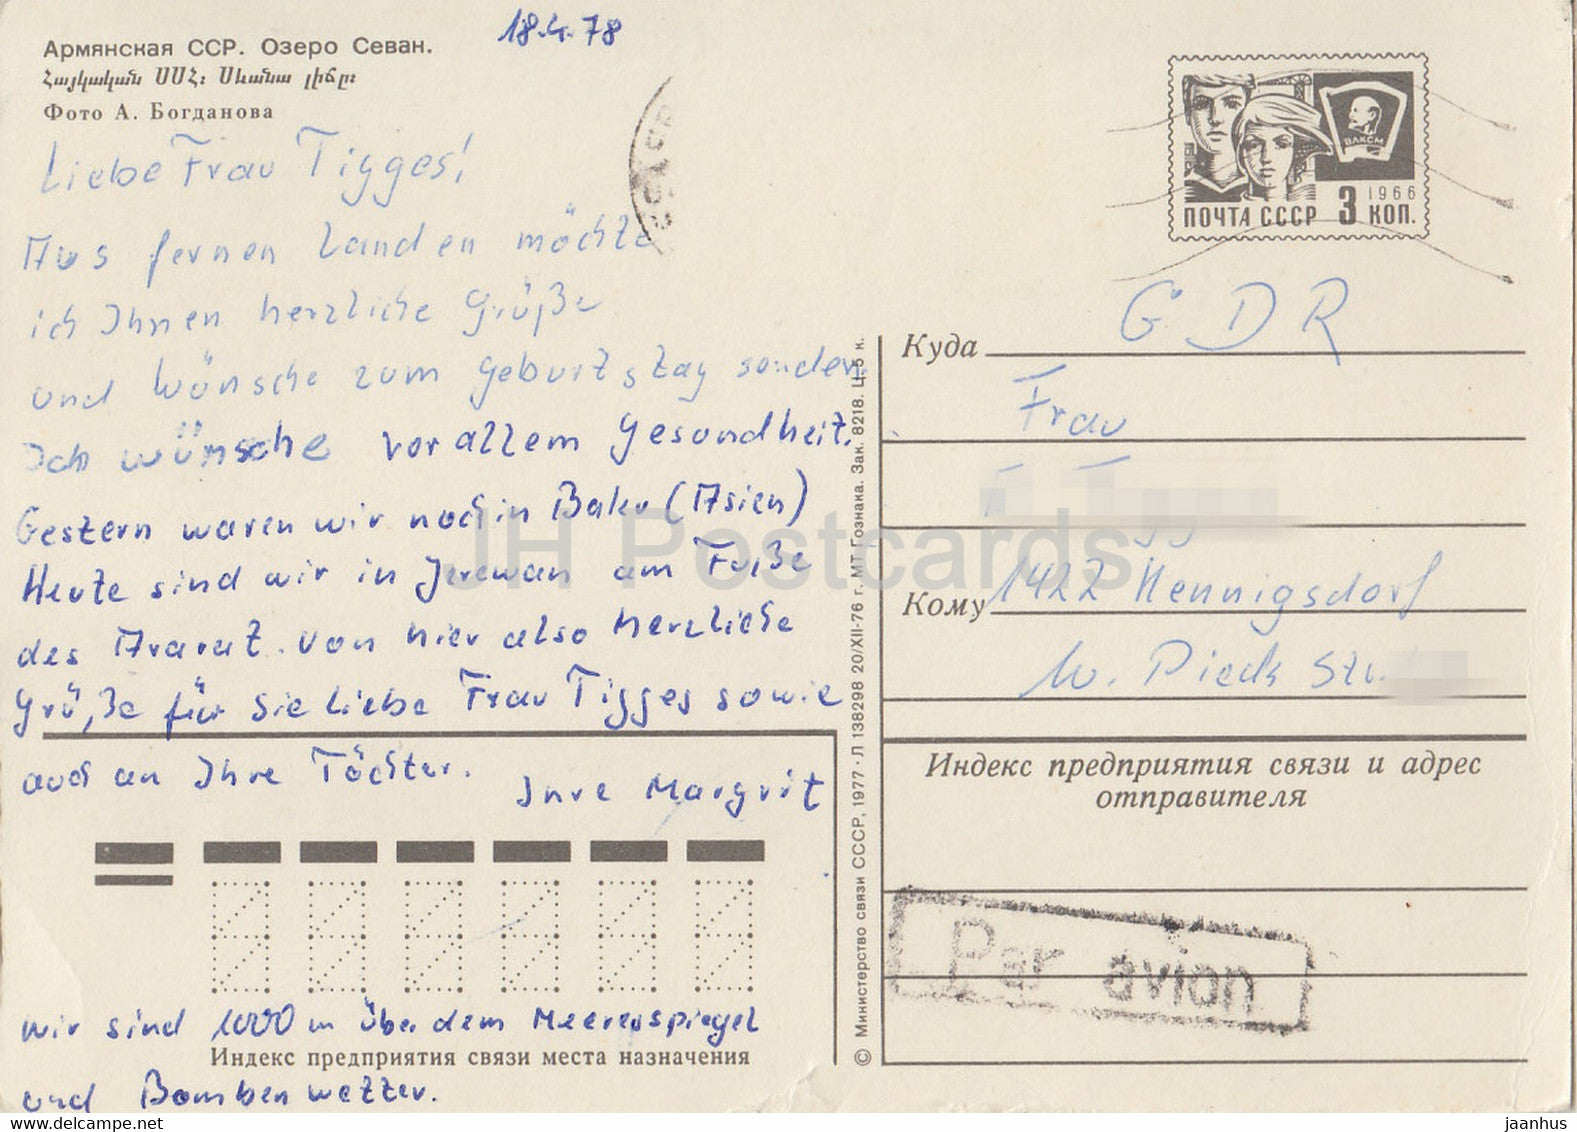 18.4.78
Армянская ССР. Озеро Севан.
Հայկական ՍՍՀ։ Սևանա լիճը։
Фото А. Богданова
Liebe Frau Tigges!
Aus fernen Landen möchte
ich Ihnen herzliche Grüße
und Wünsche zum Geburtstag senden.
Ich wünsche vor allem Gesundheit.
Gestern waren wir noch in Baku (Asien)
Heute sind wir in Jerewan am Fuße
des Ararat. Von hier also herzliche
Grüße für Sie liebe Frau Tigges sowie
auch an Ihre Töchter.
Inre Margrit
wir sind 1000 m über dem Meerenspiegel
Индекс предприятия связи места назначения
und Bombenwetter.
© Министерство связи СССР, 1977 · Л 138298 20/XII-76 г. МТ Гознака. Зак. 8218. Ц. 5 к.
ВЛКСМ
1966
ПОЧТА СССР 3 КОП.
GDR
Куда
Frau
Кому 1422 Hennigsdorf
W. Pieck Str.
Индекс предприятия связи и адрес
отправителя
Par avion
JH Postcards
jaanhus
www.hippostcard.com